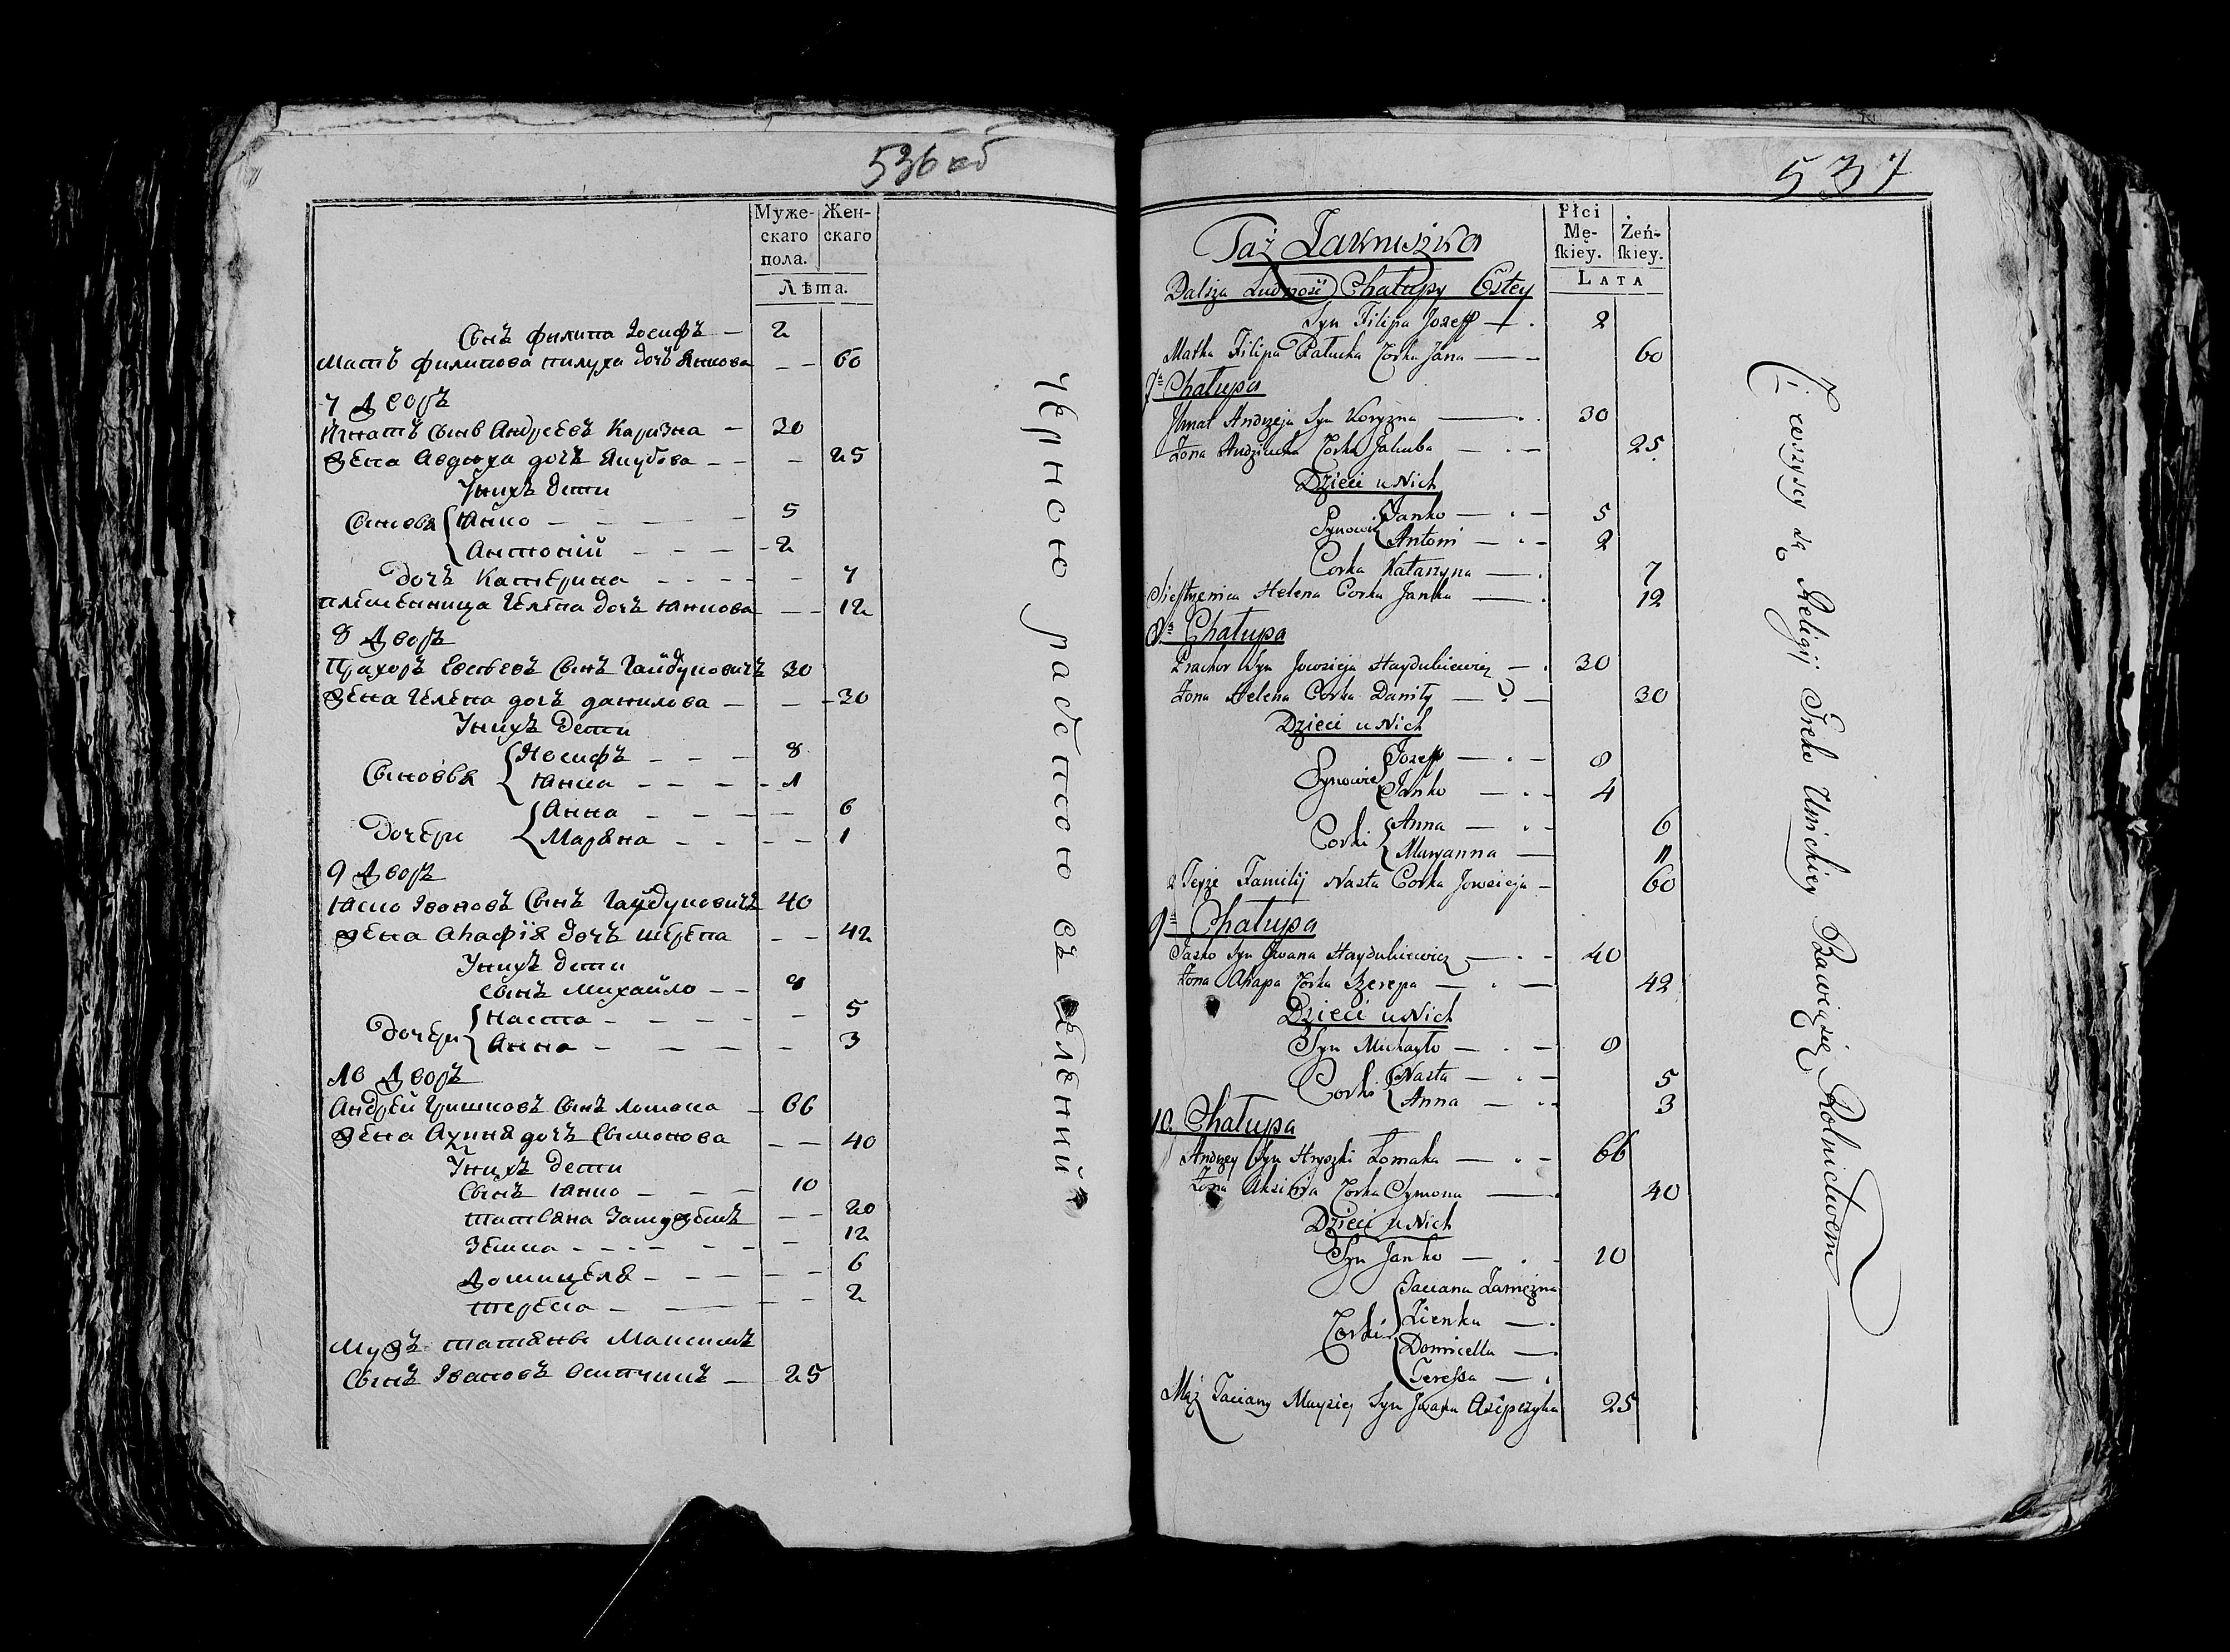 536 об
Муже-
скаго
пола.
Жен-
скаго
Лѣта.
Сынъ филипа Іосифъ — 2
Мать филипова пилуха дочъ Янкова — — 60
7 Дворъ
Игнатъ Сынъ Андреевъ Каризна — 30
Жена Авдюха дочъ Якубова — — — 25
Унихъ дети
Сыновья Янко — — — — — 5
Антоній — — — — 2
дочъ Катерина — — — — — 7
племеница Гелена дочъ Янкова — — 12
8 Дворъ
Прахоръ Евсеевъ Сынъ Гайдукович 30
Жена Гелена дочъ данилова — — — 30
Унихъ дети
Сыновья Иосифъ — — — 8
Янка — — — — 4
дочери Анна — — — — 6
Марьяна — — — — 1
9 Дворъ
Яско Ивановъ Сынъ Гайдуковичъ 40
жена Агафія дочъ шерепа — — 42
Унихъ дети
Сынъ Михайло — — 8
дочери Наста — — — — — — 5
Анна — — — — — 3
10 Дворъ
Андрей Гришковъ Сынъ ломака — 66
Жена Ахиня дочъ Сымонова — — 40
Унихъ дети
Сынъ Янко — — — 10
татьяна Замужемъ — — 20
Зенка — — — — — — 12
Домицеля — — — — — 6
тереса — — — — 2
Мужъ татьяны Максимъ
Сынъ Ивановъ Асипчикъ — 25
черною работою въ селении
537
Płci
Mę-
ſkiey.
Żeń-
ſkiey.
LATA
Taż Ławniszka
Dalsza Ludność Chałupy 6stey
Syn Filipa Jozeff — 2
Matka Filipa Pałucha Corka Jana — — 60
7ª Chałupa
Jhnat Andrzeja Syn Koryzna — 30
Żona Audziucha Corka Jakuba — — 25
Dzieci u Nich
Synowie Janko — — 5
Antoni — — 2
Corka Katarzyna — 7
Siestrzenica Helena Corka Janka — 12
8ª Chałupa
Prachor Syn Jowsieja Haydukiewicz — 30
Żona Helena Corka Daniły — — 30
Dzieci u Nich
Synowie Jozeff — — 8
Janko — — 4
Corki Anna — — 6
Maryanna — 11
2 Teyże Familij Nasta Corka Jowsieja — 60
9ª Chałupa
Jasko Syn Jwana Haydukiewicz — — 40
Żona Ahapa Corka Szerepa — — 42
Dzieci u Nich
Syn Michayło — — 8
Corki Nasta — — 5
Anna — — 3
10. Chałupa
Andrzey Syn Hryszki Łomaka — — 66
Żona Aksinia Corka Symona — 40
Dzieci u Nich
Syn Janko — — 10
Corki Taciana Zamężna
Zienka —
Domicella —
Teressa —
Mąż Taciany Maysiej Syn Jwana Asipczyka 25
Ci wszyscy są Religij Greko Unickiey Bawią się Rolnictwem